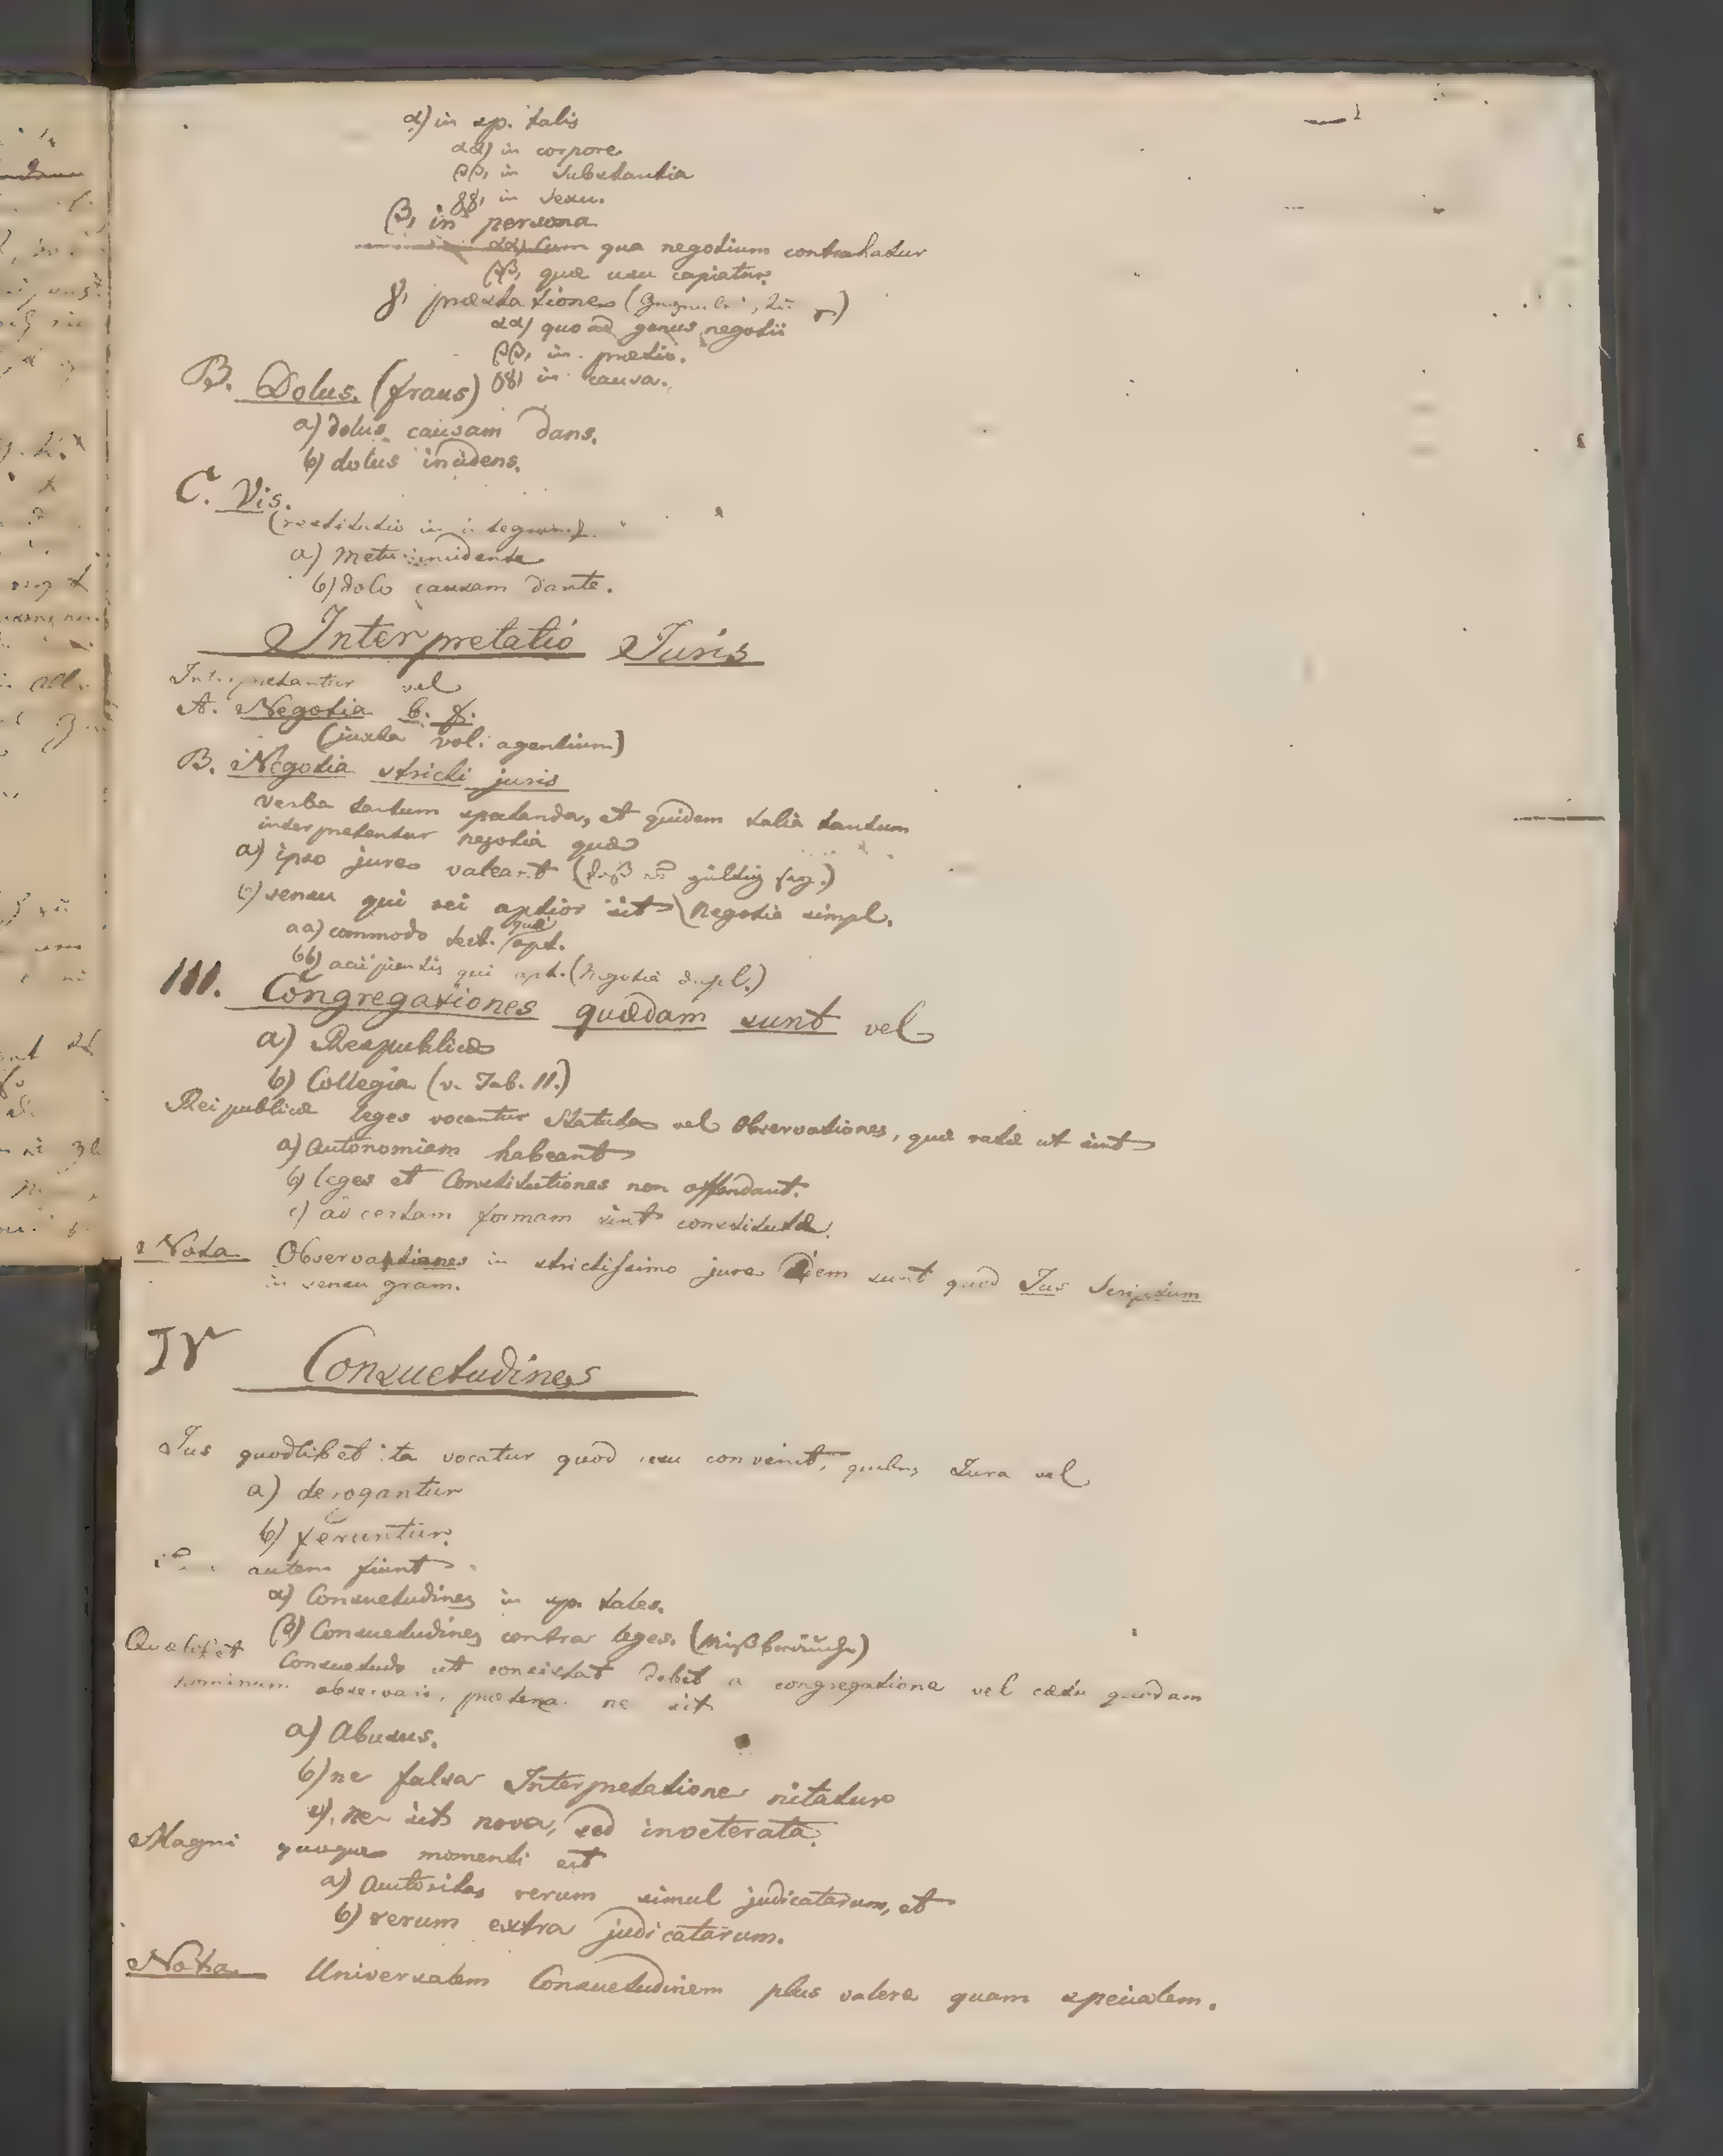 α) in sp. talis
αα) in corpore
ββ, in Substantia
γγ, in sexu.
β, in persona
αα) Cum qua negotium contrahatur
ββ, quæ usu capiatur.
γ, præstatione
αα) quoad genus negotii
ββ, in pretio.
γγ) in causa.
B. Dolus. (fraus)
a) dolus causam dans.
b) dolus incidens.
C. Vis.
(restitutio in integrum).
a) Metu incidente
b) dolo causam dante.
Interpretatio Juris
Interpretantur vel
A. Negotia b. f.
(juxta vol. agentium)
B. Negotia stricti juris
Verba tantum spectanda, et quidem talia tantum
interpretentur negotia quæ
a) ipso jure valeant (daß gültig)
b) sensu qui rei aptior sit Negotia simpl.
aa) commodo qui apt.
bb) accipientis qui apt. (Negotia dupl.)
III. Congregationes quædam sunt vel
a) Respublicæ
b) Collegia (v. Tab. II.)
Reipublicæ leges vocantur Statuta vel Observationes, quæ ratæ ut sint
a) Autonomiam habeant
b) leges et Constitutiones non offendant.
c) ad certam formam sint constitutæ.
Nota Observationes in strictissimo jure Idem sunt quod Jus Scriptum
in sensu gram.
IV Consuetudines
Jus quodlibet ita vocatur quod usu convenit, quibus Jura vel
a) derogantur
b) feruntur.
autem fiunt
α) Consuetudines in sp. tales.
β) Consuetudines contra leges. (Mißbräuche)
Quælibet Consuetudo ut consistat debet a congregatione vel cætu quodam
hominum observari, præterea ne sit
a) Abusus.
b) ne falsa Interpretatione nitatur
c) ne sit nova, sed inveterata.
Magni quoque momenti est
a) Autoritas rerum simul judicatarum, et
b) rerum extra judicatarum.
Nota Universalem Consuetudinem plus valere quam specialem.